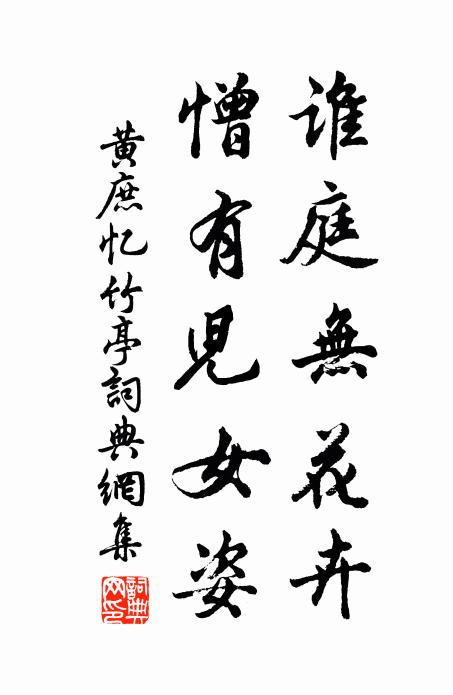 誰庭無花卉
憎有兒女姿
黃庶忆竹亭詞典網集
詞典网印